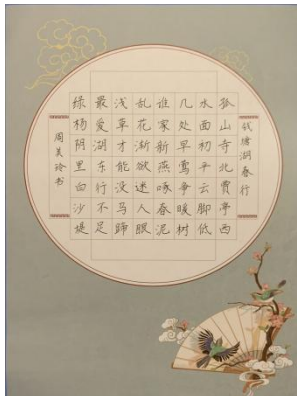 钱塘湖春行
孤山寺北賈亭西
水面初平云脚低
几处早莺争暖树
谁家新燕啄春泥
乱花渐欲迷人眼
浅草才能没马蹄
最爱湖东行不足
绿杨阴里白沙堤
周美玲书